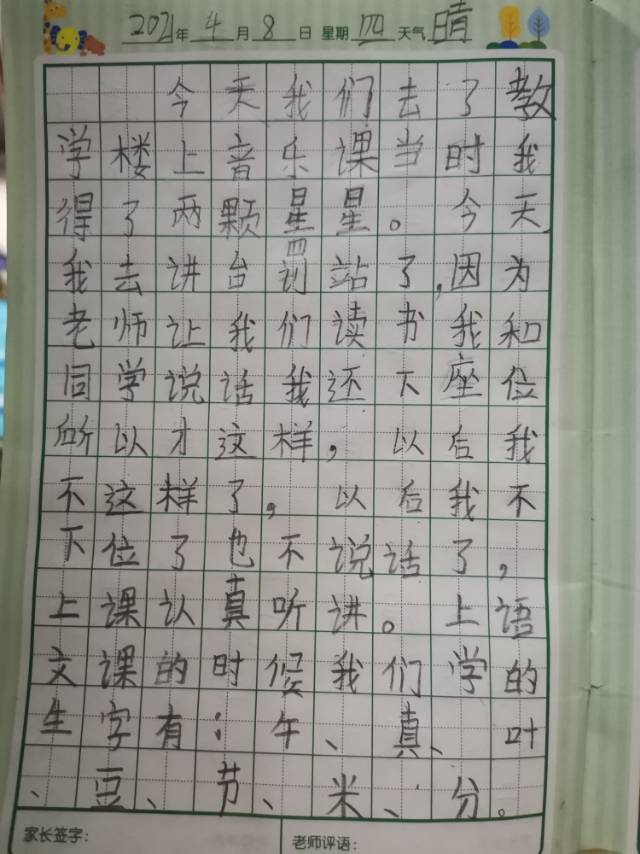 2021年 4月 8日 星期 四 天气 晴
今天我们去了教
学楼上音乐课当时我
得了两颗星星。今天
我去讲台罚站了,因为
老师让我们读书我和
同学说话我还下座位
所以才这样,以后我
不这样了,以后我不
下位了也不说话了,
上课认真听讲。上语
文课的时候我们学的
生字有:午、真、叶
、豆、节、米、分。
家长签字: 老师评语: